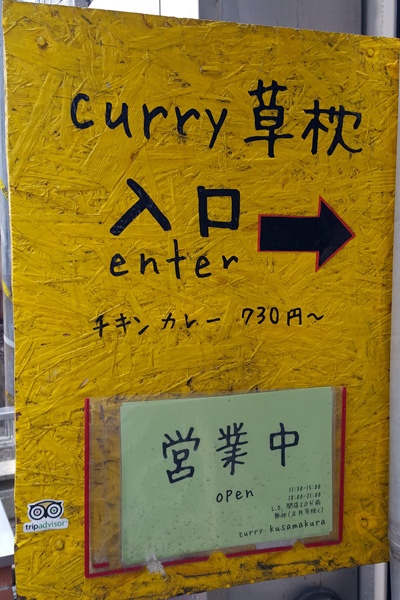 curry 草枕
入口
enter
チキンカレー 730円～
営業中
open
11:30-15:00
18:00-21:00
L.O. 閉店20分前
無休(正月等除く)
curry kusamakura
tripadvisor